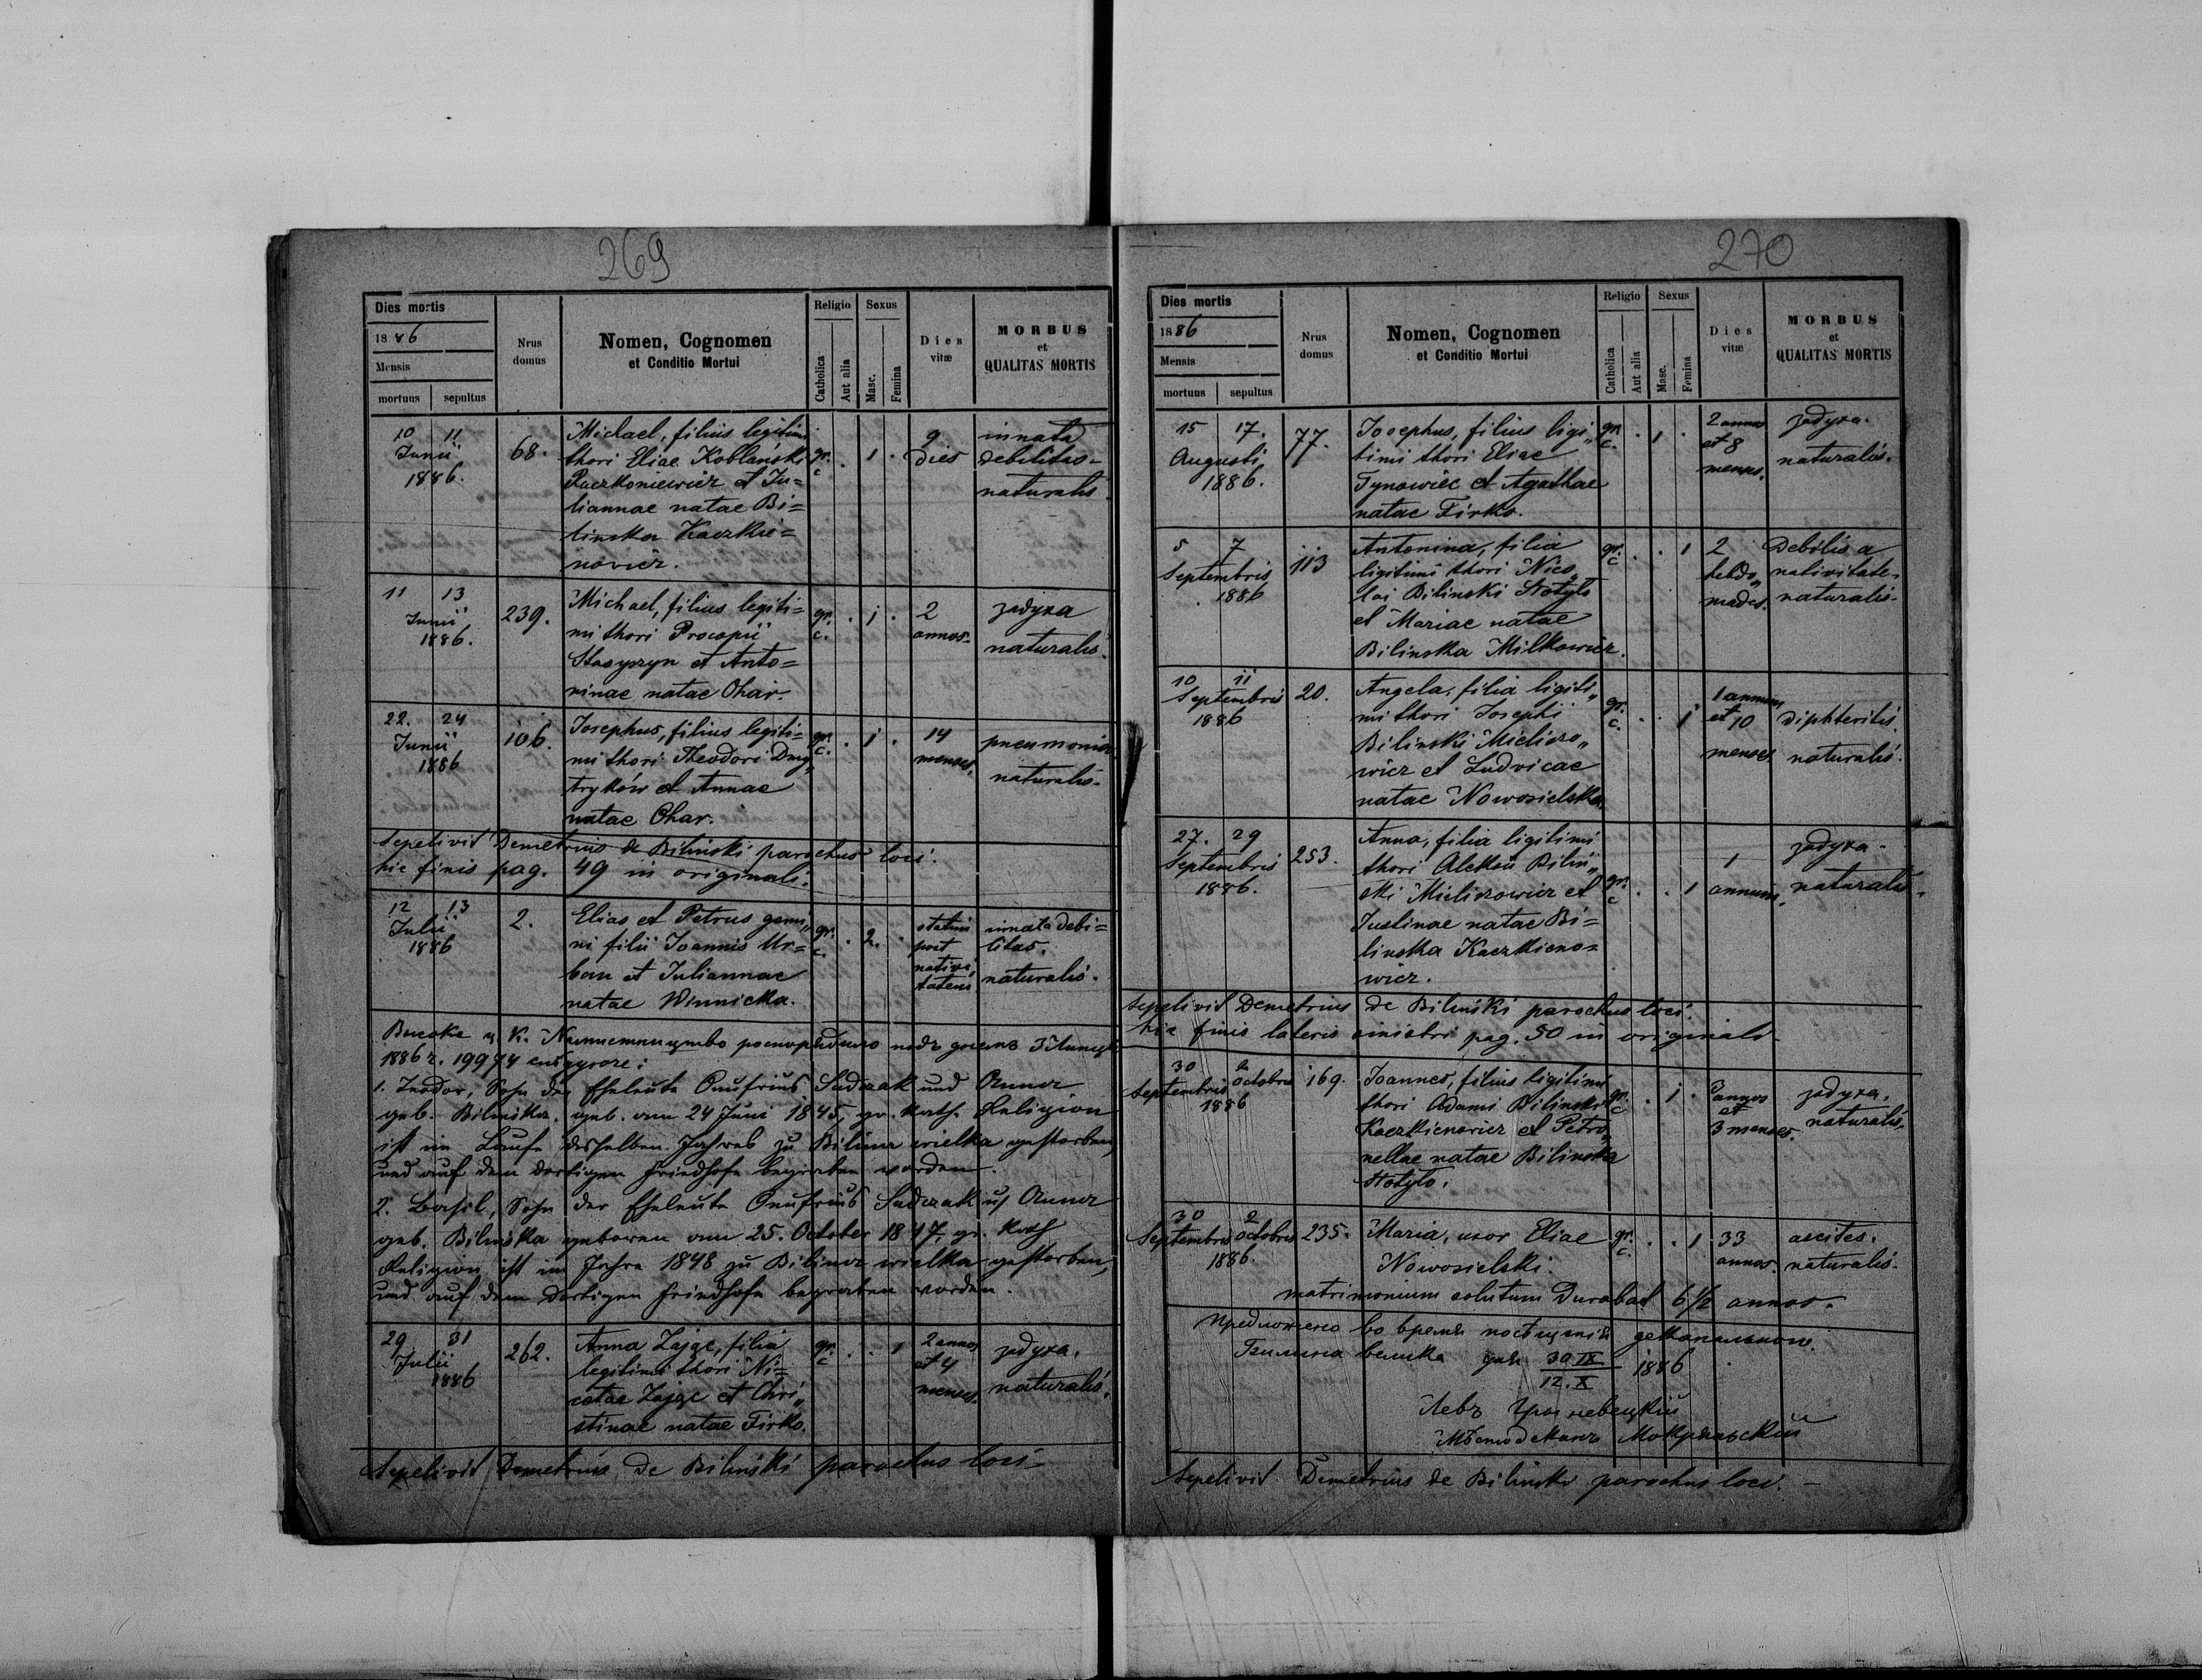 269
Dies mortis
1886
Mensis
mortuus sepultus
Nrus domus
Nomen, Cognomen
et Conditio Mortui
Religio
Catholica
Aut alia
Sexus
Masc.
Femina
Dies vitæ
MORBUS
et
QUALITAS MORTIS
10 11 Michael, filius legitimi 9 innata
Junii 68. thori Eliae Koblański gr. c. . 1 . dies debilitas-
1886. Raczkoniewicz et Ju= naturalis
liannae natae Bi=
linska Kaczkie=
novicz.
11 13 Michael, filius legiti= 2 задуха
Junii 239. mi thori Procopii gr. c. . 1 . annos- naturalis.
1886. Stasyszyn et Anto=
ninae natae Ohar.
22. 24 Josephus, filius legiti= 14 pneumonia
Junii 106. mi thori Theodori Dmy„ gr. c. . 1 . menses. naturalis-
1886 tryków et Annae
natae Ohar.
Sepelivit Demetrius de Biliński parochus loci.
hic finis pag. 49 in originali.
12 13 Elias et Petrus gemi„ statim innata debi=
Julii 2. ni filii Joannis Ur= gr. c. . 2. . post litas.
1886 ban et Juliannae nativi„ naturalis.
natae Winnicka. tatem
Высоке ц. к. Намистництво роспорядило подъ днемъ
1886 г. 19974
1. Teodor, Sohn der Eheleute Onufrius Sadczak und Anna
geb. Bilinska, geb. am 24 Juni 1845, gr. kath. Religion
ist im Laufe desselben Jahres zu Bilina wielka gestorben,
und auf dem dortigen Friedhofe begraben worden.
2. Basil, Sohn der Eheleute Onufrius Sadczak u. Anna
geb. Bilinska geboren am 25. October 1847, gr. kath
Religion, ist im Jahre 1848 zu Bilina wielka gestorben,
und auf dem dortigen Friedhofe begraben worden.
29 31 Anna Zając, filia 2 annos задуха.
Julii 262. legitimi thori Ni= gr. c . . 1 et 4 naturalis.
1886 cetae Zając et Chri„ menses.
stinae natae Firko.
Sepelivit Demetrius de Biliński parochus loci-
270
Dies mortis
1886
Mensis
mortuus sepultus
Nrus domus
Nomen, Cognomen
et Conditio Mortui
Religio
Catholica
Aut alia
Sexus
Masc.
Femina
Dies vitæ
MORBUS
et
QUALITAS MORTIS
15 17. Josephus, filius ligi„ 2 annos задуха.
Augusti 77. timi thori Eliae gr. c. . 1 . et 8 naturalis.
1886. Tynowiec et Agathae menses.
natae Firko.
5 7 Antonina, filia 2 Debilis a
Septembris 113 ligitimi thori Nico„ gr. c . . 1 hebdo„ nativitate-
1886 lai Bilinski Stotylo mades. naturalis-
et Mariae natae
Bilinska Milkowicz.
10 11 Angela, filia ligiti„ 1 annum
Septembris 20. mi thori Josephi gr. c. . . 1 et 10 diphteritis
1886 Bilinski Mieliszo„ menses naturalis.
wicz et Ludvicae
natae Nowosielska.
27. 29 Anna, filia ligitimi задуха-
Septembris 253. thori Aleksii Bilin„ 1
1886. ski Mieliszowicz et gr. c . . 1 annum. naturalis.
Justinae natae Bi=
linska Kaczkieno=
wicz.
Sepelivit Demetrius de Biliński parochus loci.
hic finis lateris sinistri pag. 50 in originali-
30 2 Joannes, filius ligitimi 3
Septembris octobris 169. thori Adami Bilinski gr. c . 1 . annos задуха,
1886 Kaczkienovicz et Petro„ et naturalis,
nellae natae Bilinska 3 menses.
Stotylo.
30 2
Septembris octobris 235. Maria, uxor Eliae gr. c. . . 1 33 ascites.
1886. Nowosielski. annos. naturalis.
matrimonium solutum durabat 6 1/2 annos.
Предложено во время посѣщенія деканального.
Билина велика дня 30.IX / 12.X 1886
Левъ
Мѣстодеканъ Мокрянскій
Sepelivit Demetrius de Bilinski parochus loci. -